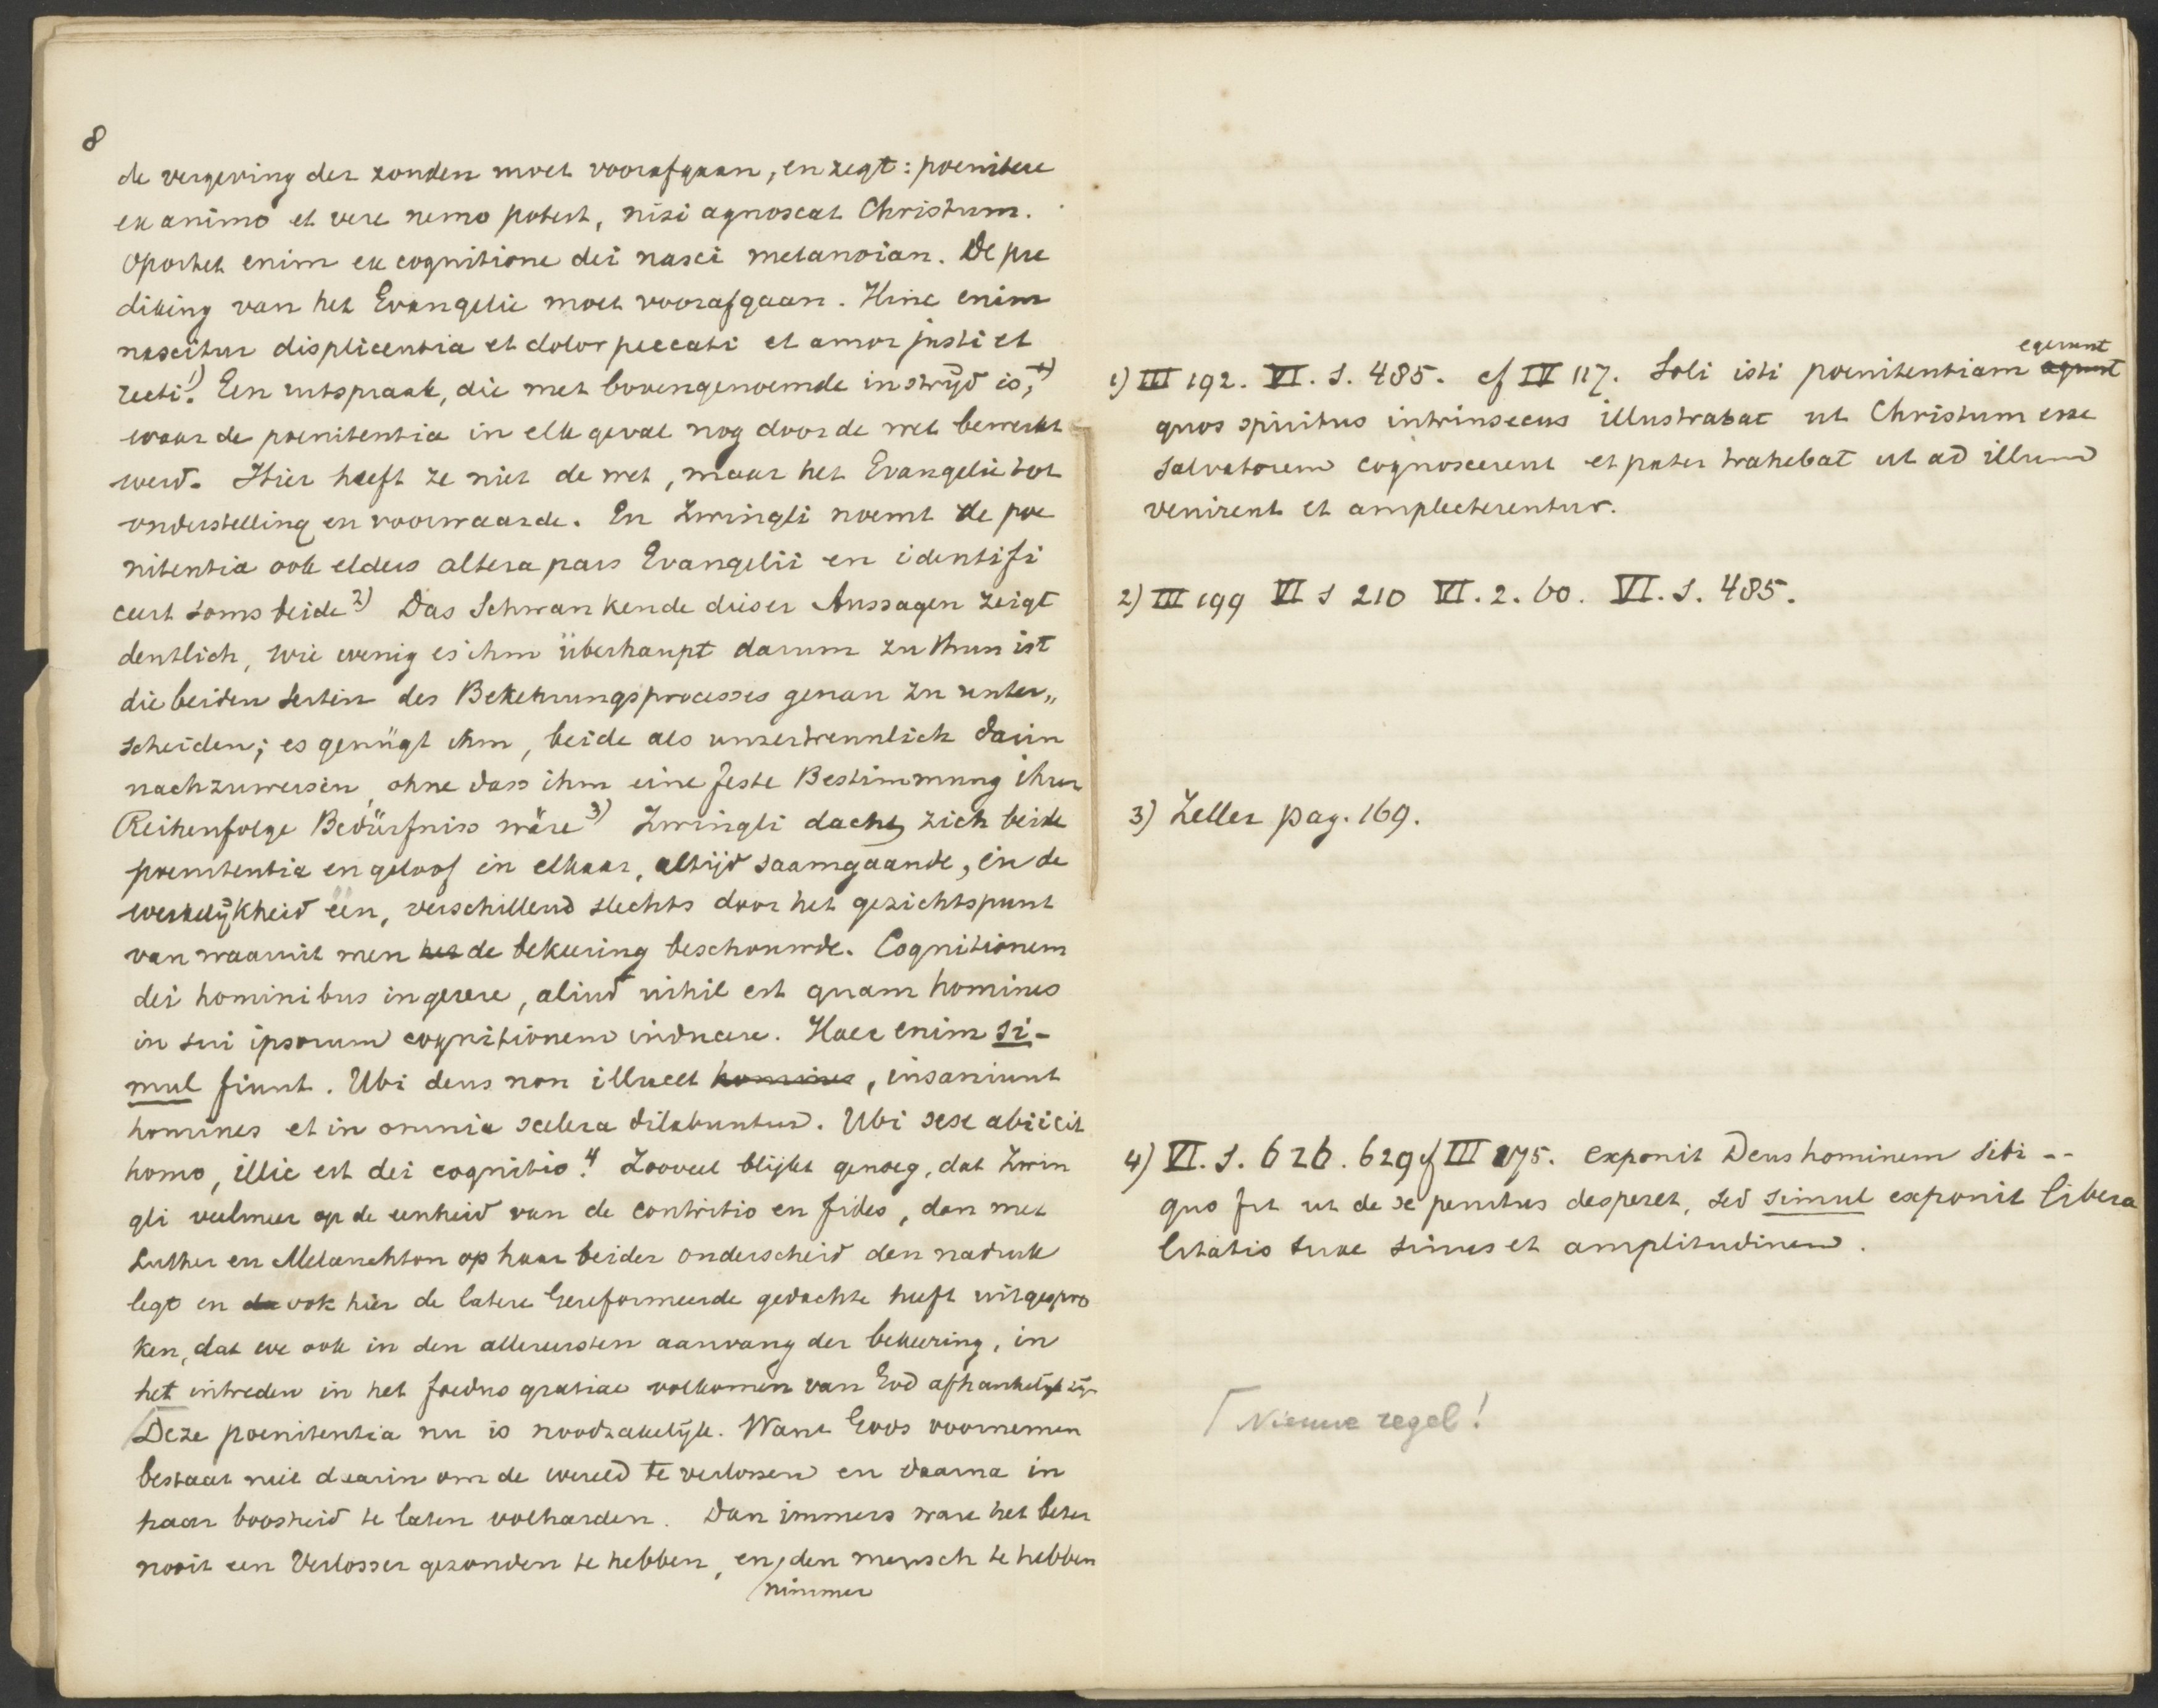 8
de vergeving der zonden moet voorafgaan, en zegt: poenitere
ex animo et vere nemo potest, nisi agnoscat Christum.
Oportet enim ex cognitione dei nasci metanoian. De pre
diking van het Evangelie moet voorafgaan. Hinc enim
nascitur displicentia et dolor peccati et amor justi et
recti.1) Een uitspraak, die met bovengenoemde in strijd is,
waar de poenitentia in elk geval nog door de wet bewerkt
werd. Hier heeft ze niet de wet, maar het Evangelie tot
onderstelling en voorwaarde. En Zwingli noemt de poe
nitentia ook elders altera pars Evangelii en identifi
ceert soms beide 2) Das Schwankende dieser Aussagen zeigt
deutlich, wie wenig es ihm überhaupt darum zu thun ist
die beiden Seiten des Bekehrungsprocesses genau zu unter„
scheiden; es genügt ihm, beide als unzertrennlich darin
nachzuweisen, ohne dass ihm eine feste Bestimmung ihrer
Reihenfolge Bedürfniss wäre 3) Zwingli dacht zich beide
poenitentia en geloof in elkaar, altijd saamgaande, in de
werkelijkheid één, verschillend slechts door het gezichtspunt
van waaruit men het de bekeering beschouwde. Cognitionem
dei hominibus ingerere, aliud nihil est quam homines
in sui ipsorum cognitionem inducere. Haec enim si-
mul fiunt. Ubi deus non illucet homines, insaniunt
homines et in omnia scelera dilabuntur. Ubi sese abiicit
homo, illic est dei cognitio. 4 Zooveel blijkt genoeg, dat Zwin
gli veelmeer op de eenheid van de contritio en fides, dan met
Luther en Melanchton op haar beider onderscheid den nadruk
legt en da ook hier de latere Gereformeerde gedachte heeft uitgespro
ken, dat we ook in den allereersten aanvang der bekeering, in
het intreden in het foedus gratiae volkomen van God afhankelijk zijn
Deze poenitentia nu is noodzakelijk. Want Gods voornemen
bestaat niet daarin om de wereld te verlossen en daarna in
haar boosheid te laten volharden. Dan immers ware het beter
nooit een Verlosser gezonden te hebben, en den mensch te hebben
nimmer
egerunt
1) III 192. VI. S. 485. cf IV 117. Soli isti poenitentiam agunt
quos spiritus intrinsecus illustrabat ut Christum esse
salvatorem cognoscerent et pater trahebat ut ad illum
venirent et amplecterentur.
2) III 199 VI S 210 VI. 2. 60. VI. S. 485.
3) Zeller pag. 169.
4) VI. S. 626. 629 cf III 175. exponit Deus hominem sibi --
quo fit ut de se penitus desperet, sed simul exponit libera
litatis suae sinus et amplitudinem.
Nieuwe regel!